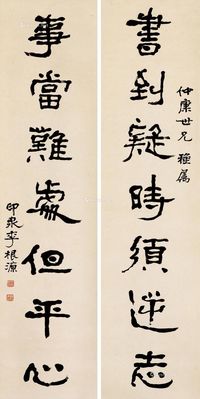 仲康世兄雅属
書到疑時須逆志
事當難處但平心
印泉李根源